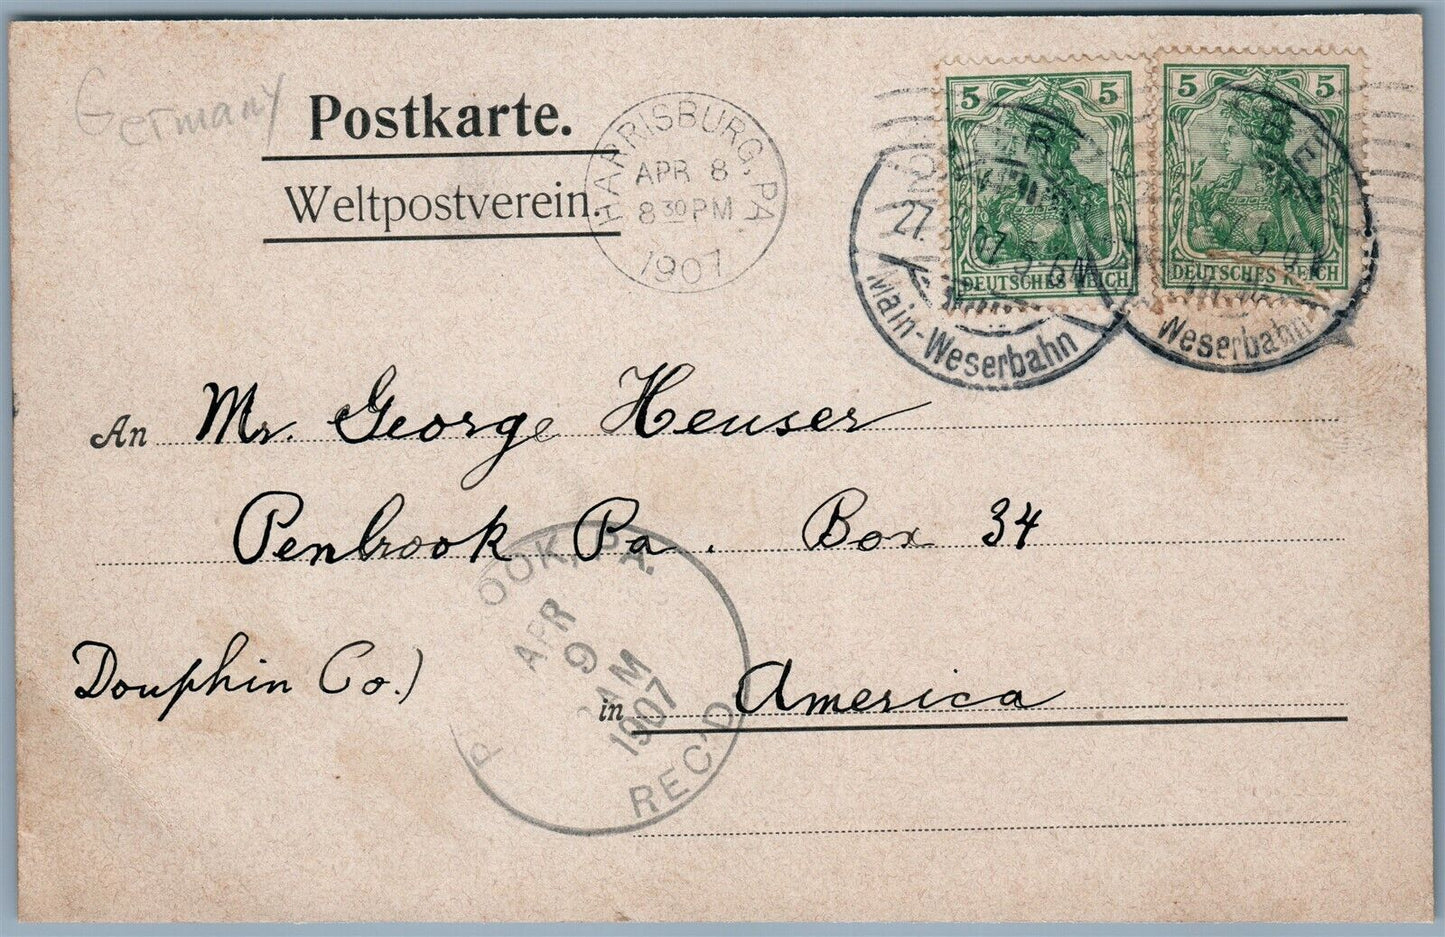 Germany
Postkarte.
Weltpostverein.
HARRISBURG, PA.
APR 8
8 30 PM
1907
5 5
DEUTSCHES REICH
5 5
DEUTSCHES REICH
27. 07. 5-6 N
Main-Weserbahn
Weserbahn
An Mr. George Heuser
Penbrook Pa. Box 34
Douphin Co.)
in America
P OOK, PA.
APR
9
AM
1907
REC'D